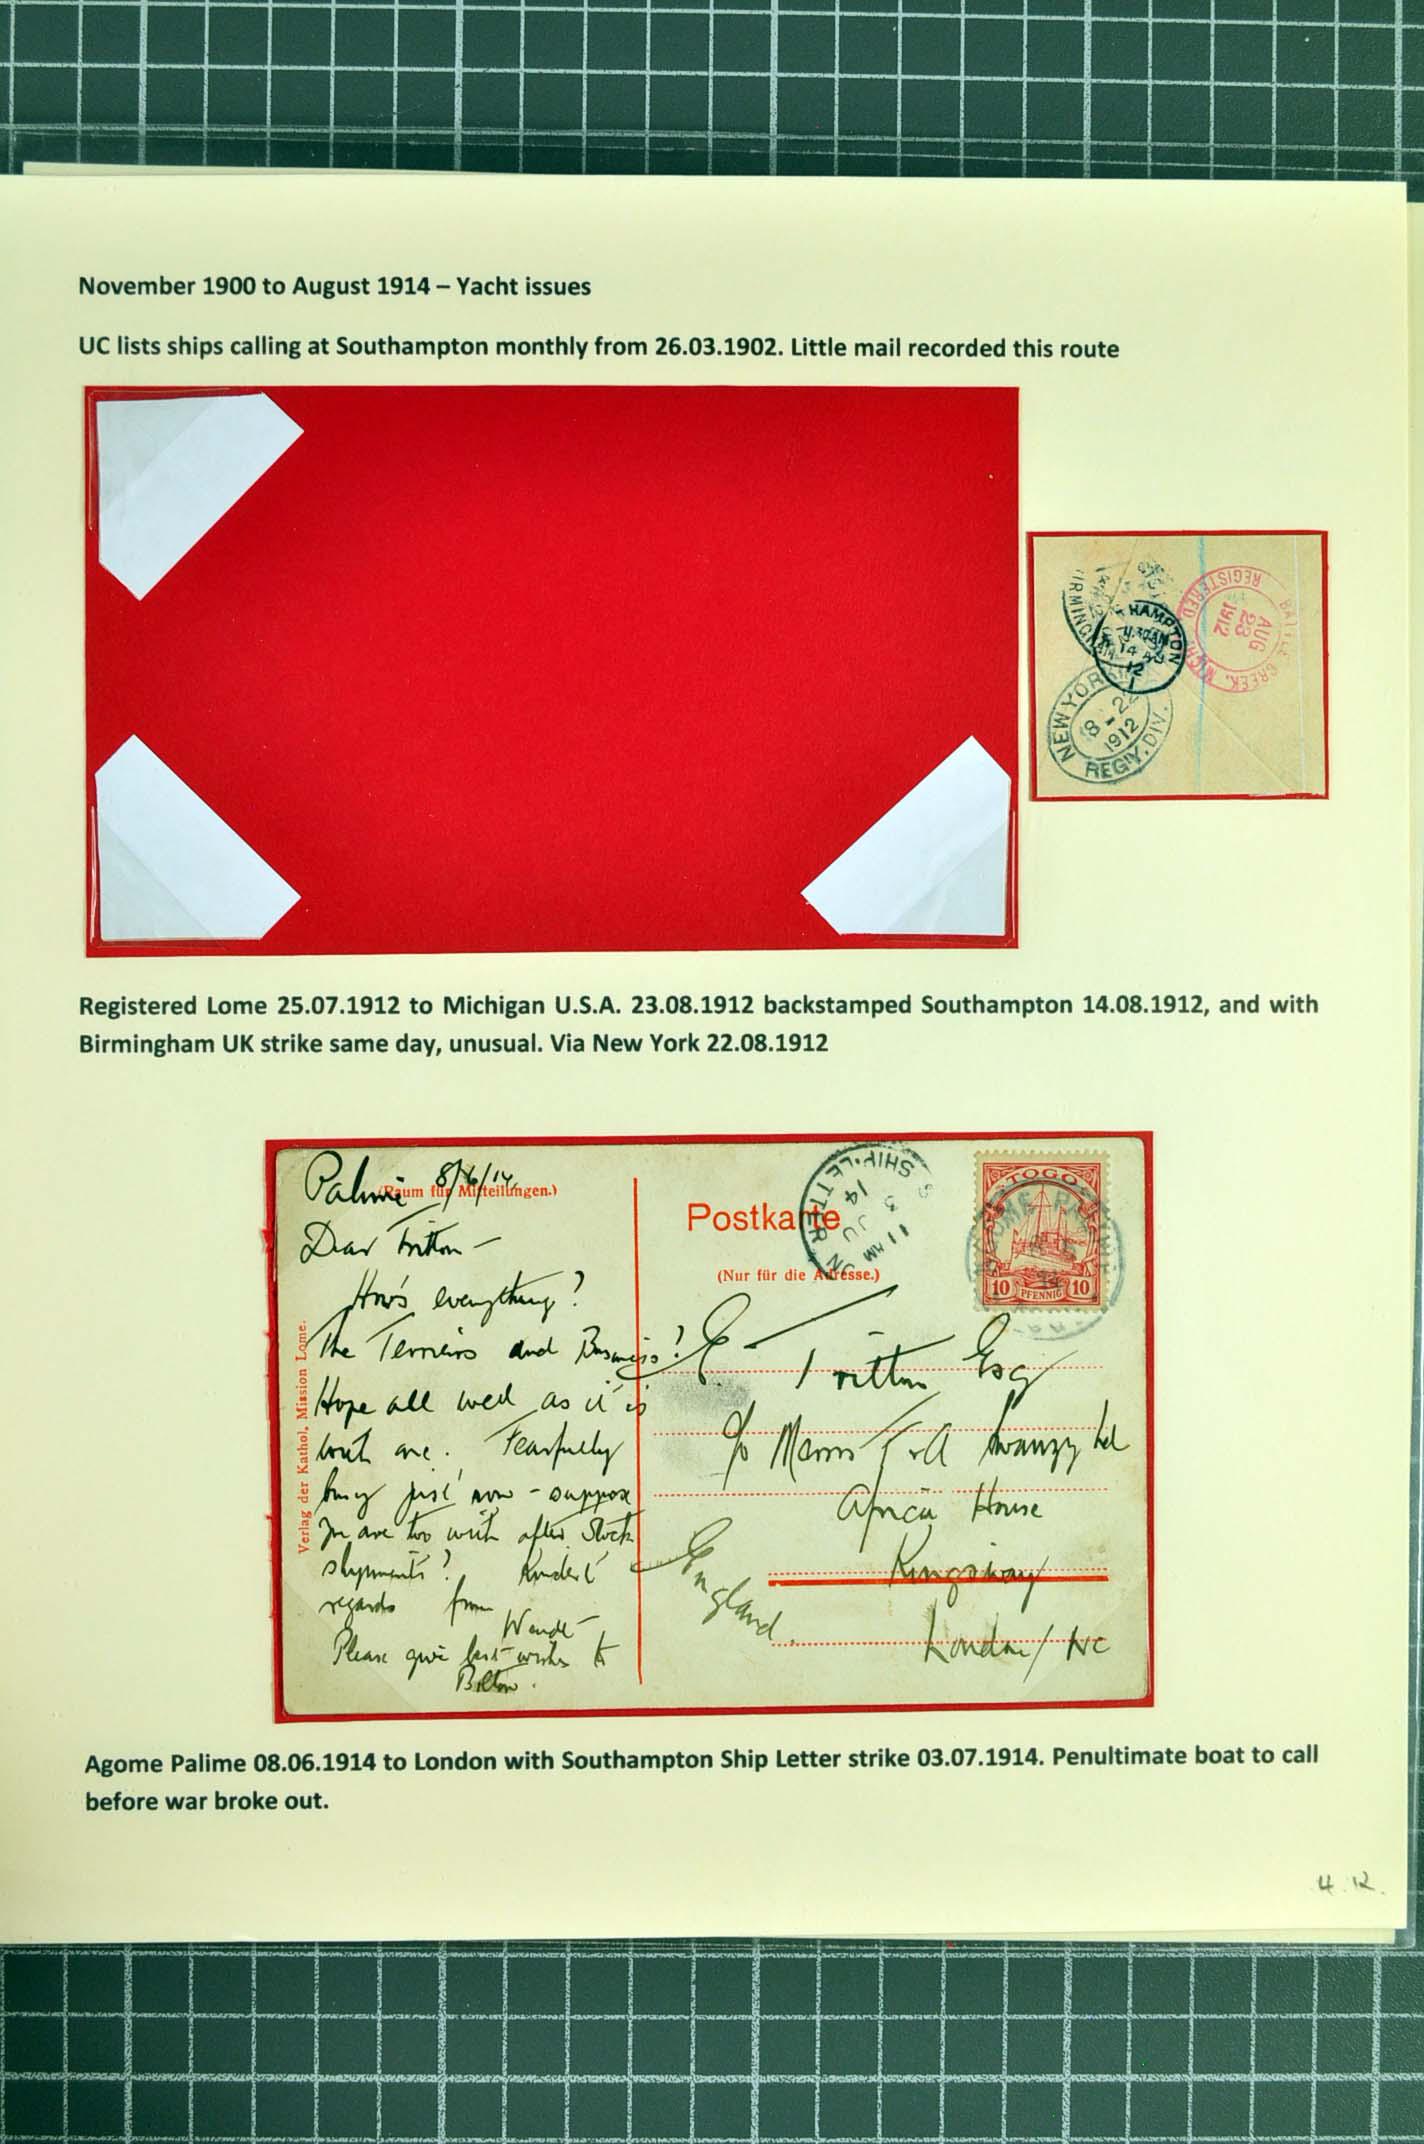 November 1900 to August 1914 – Yacht issues
UC lists ships calling at Southampton monthly from 26.03.1902. Little mail recorded this route
BIRMINGHAM
HAMPTON
11.30AM
14 AU
12
1
BATTLE CREEK, MICH.
REGISTERED
AUG
23
1912
NEW YORK
8-22
1912
REG'Y. DIV.
Registered Lome 25.07.1912 to Michigan U.S.A. 23.08.1912 backstamped Southampton 14.08.1912, and with
Birmingham UK strike same day, unusual. Via New York 22.08.1912
Palime 8/6/14
(Raum für Mitteilungen.)
Dear Tritton –
How's everything?
The Terriers and Business?
Hope all well as it is
with me. Fearfully
busy just now – suppose
you are too with after Stock
shipments? Kindest
regards from
Please give best wishes to
Bolton.
Verlag der Kathol. Mission Lome.
Postkarte
(Nur für die Adresse.)
SHIP-LETTER
11 AM
3 JU
14
TOGO
10 PFENNIG 10
E. Tritton Esq
c/o Messrs F & A Swanzy Ld
Africa House
Kingsway
London / WC
England.
Agome Palime 08.06.1914 to London with Southampton Ship Letter strike 03.07.1914. Penultimate boat to call
before war broke out.
4.12.